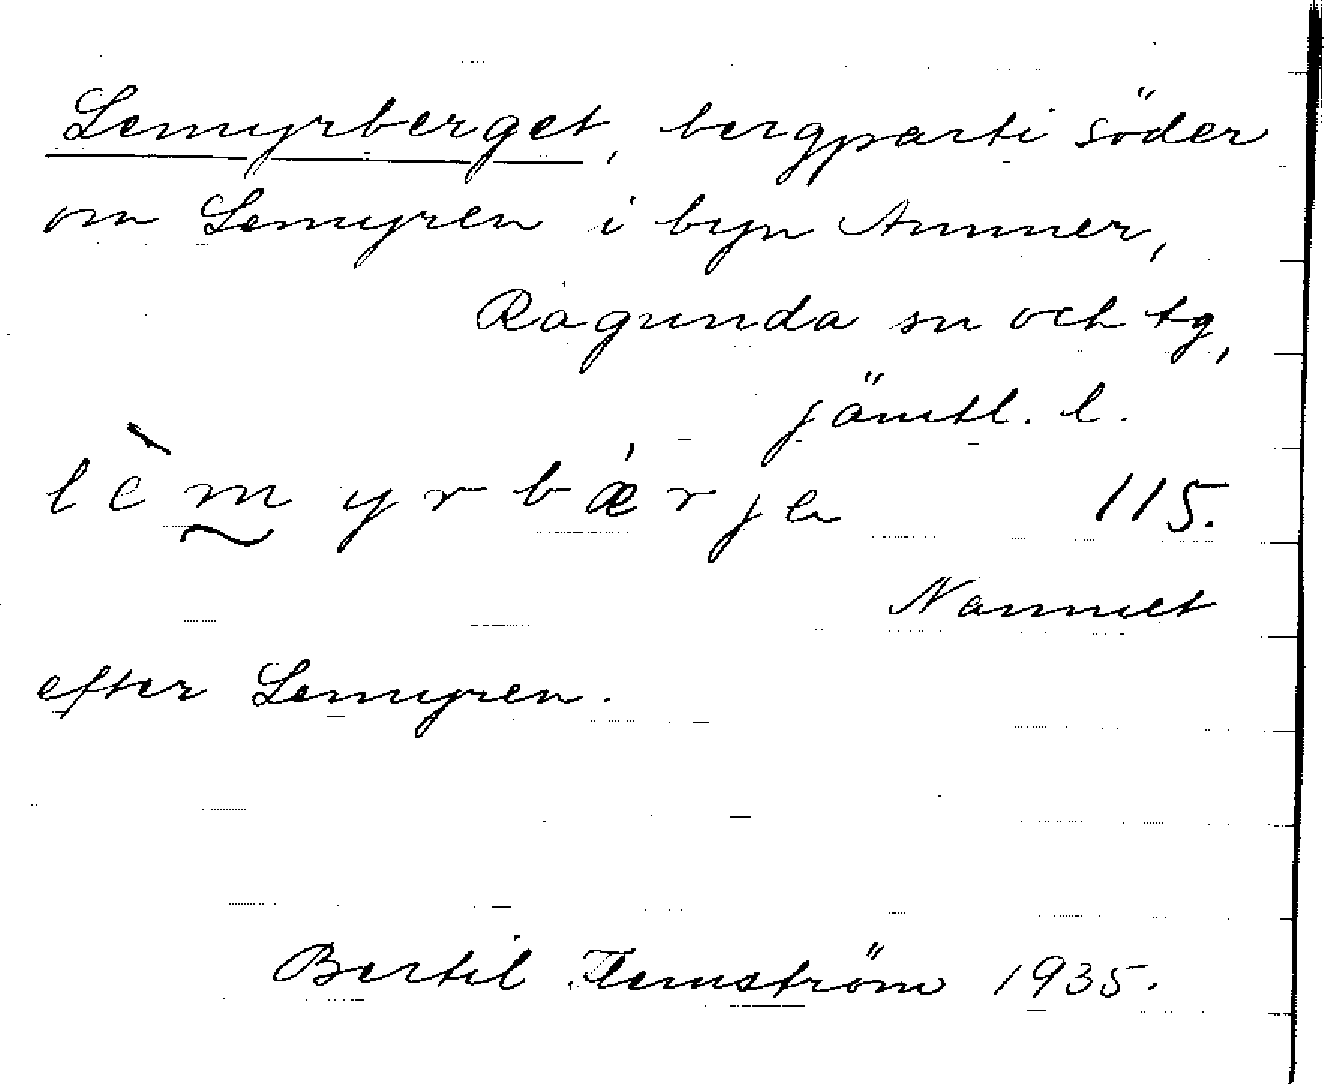 Lemyrberget, bergparti söder
om Lemyren i byn Ammer,
Ragunda sn och tg,
jämtl. l.
lèmyrbǽrjer 115.
Namnet
efter Lemyren.
Bertil Flemström 1935.